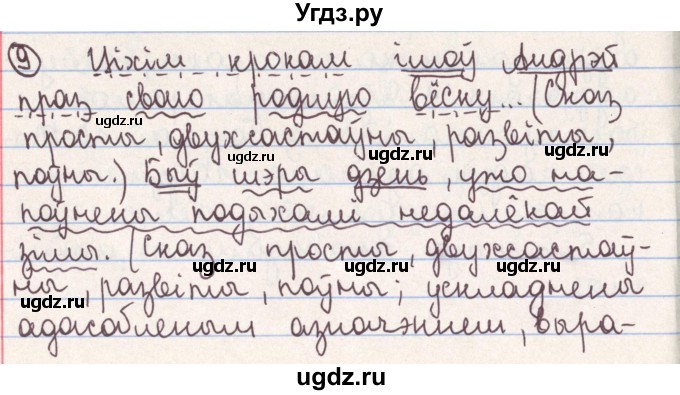 Угдз.ру
9 Ціхім крокам ішоў Андрэй
праз сваю родную вёску... (Сказ
просты, двухсастаўны, развіты,
поўны.) Быў шэры дзень, ужо на-
поўнены подыхамі недалёкай
зімы. (Сказ просты, двухсастаў-
ны, развіты, поўны; ускладнены
адасобленым азначэннем, выра-
ugdz.ru
ugdz.ru
ugdz.ru
ugdz.ru
ugdz.ru
ugdz.ru
ugdz.ru
ugdz.ru
ugdz.ru
ugdz.ru